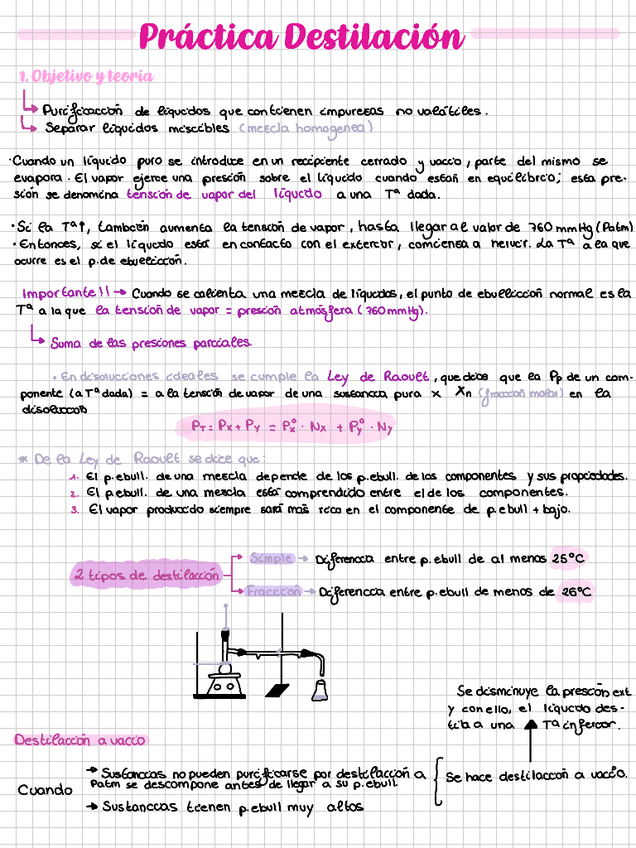 Práctica Destilación
1. Objetivo y teoria
Purificación de líquidos que contienen impurezas no volátiles.
Separar líquidos miscibles (mezcla homogenea)
·Cuando un líquido puro se introduce en un recipiente cerrado y vacio, parte del mismo se
evapora. El vapor ejerce una presión sobre el líquido cuando están en equilibrio; esta pre-
sión se denomina tensión de vapor del líquido a una Tª dada.
·Si la Tª↑, también aumenta la tensión de vapor, hasta llegar al valor de 760 mmHg (Patm)
·Entonces, si el líquido está en contacto con el exterior, comienza a hervir. La Tª a la que
ocurre es el p. de ebullición.
Importante!! → Cuando se calienta una mezcla de líquidos, el punto de ebullición normal es la
Tª a la que la tensión de vapor = presión atmósfera (760mmHg).
Suma de las presiones parciales
·En disoluciones ideales se cumple la Ley de Raoult, que dice que la Pp de un com-
ponente (a Tª dada) = a la tensión de vapor de una sustancia pura x Xn (fracción molar) en la
disolución
PT = Px + Py = P°x · Nx + P°y · Ny
* De la Ley de Raoult se dice que:
1. El p.ebull. de una mezcla depende de los p.ebull. de los componentes y sus propiedades.
2. El p.ebull. de una mezcla está comprendido entre el de los componentes.
3. El vapor producido siempre será más rico en el componente de p.ebull + bajo.
2 tipos de destilación
Simple → Diferencia entre p.ebull de al menos 25°C
Fracción → Diferencia entre p.ebull de menos de 26°C
Se disminuye la presión ext
y con ello, el líquido des-
tila a una Tª inferior.
Destilación a vacio
Cuando
→ Sustancias no pueden purificarse por destilación a
Patm se descompone antes de llegar a su p.ebull.
→ Sustancias tienen p.ebull muy altos
Se hace destilación a vacio.